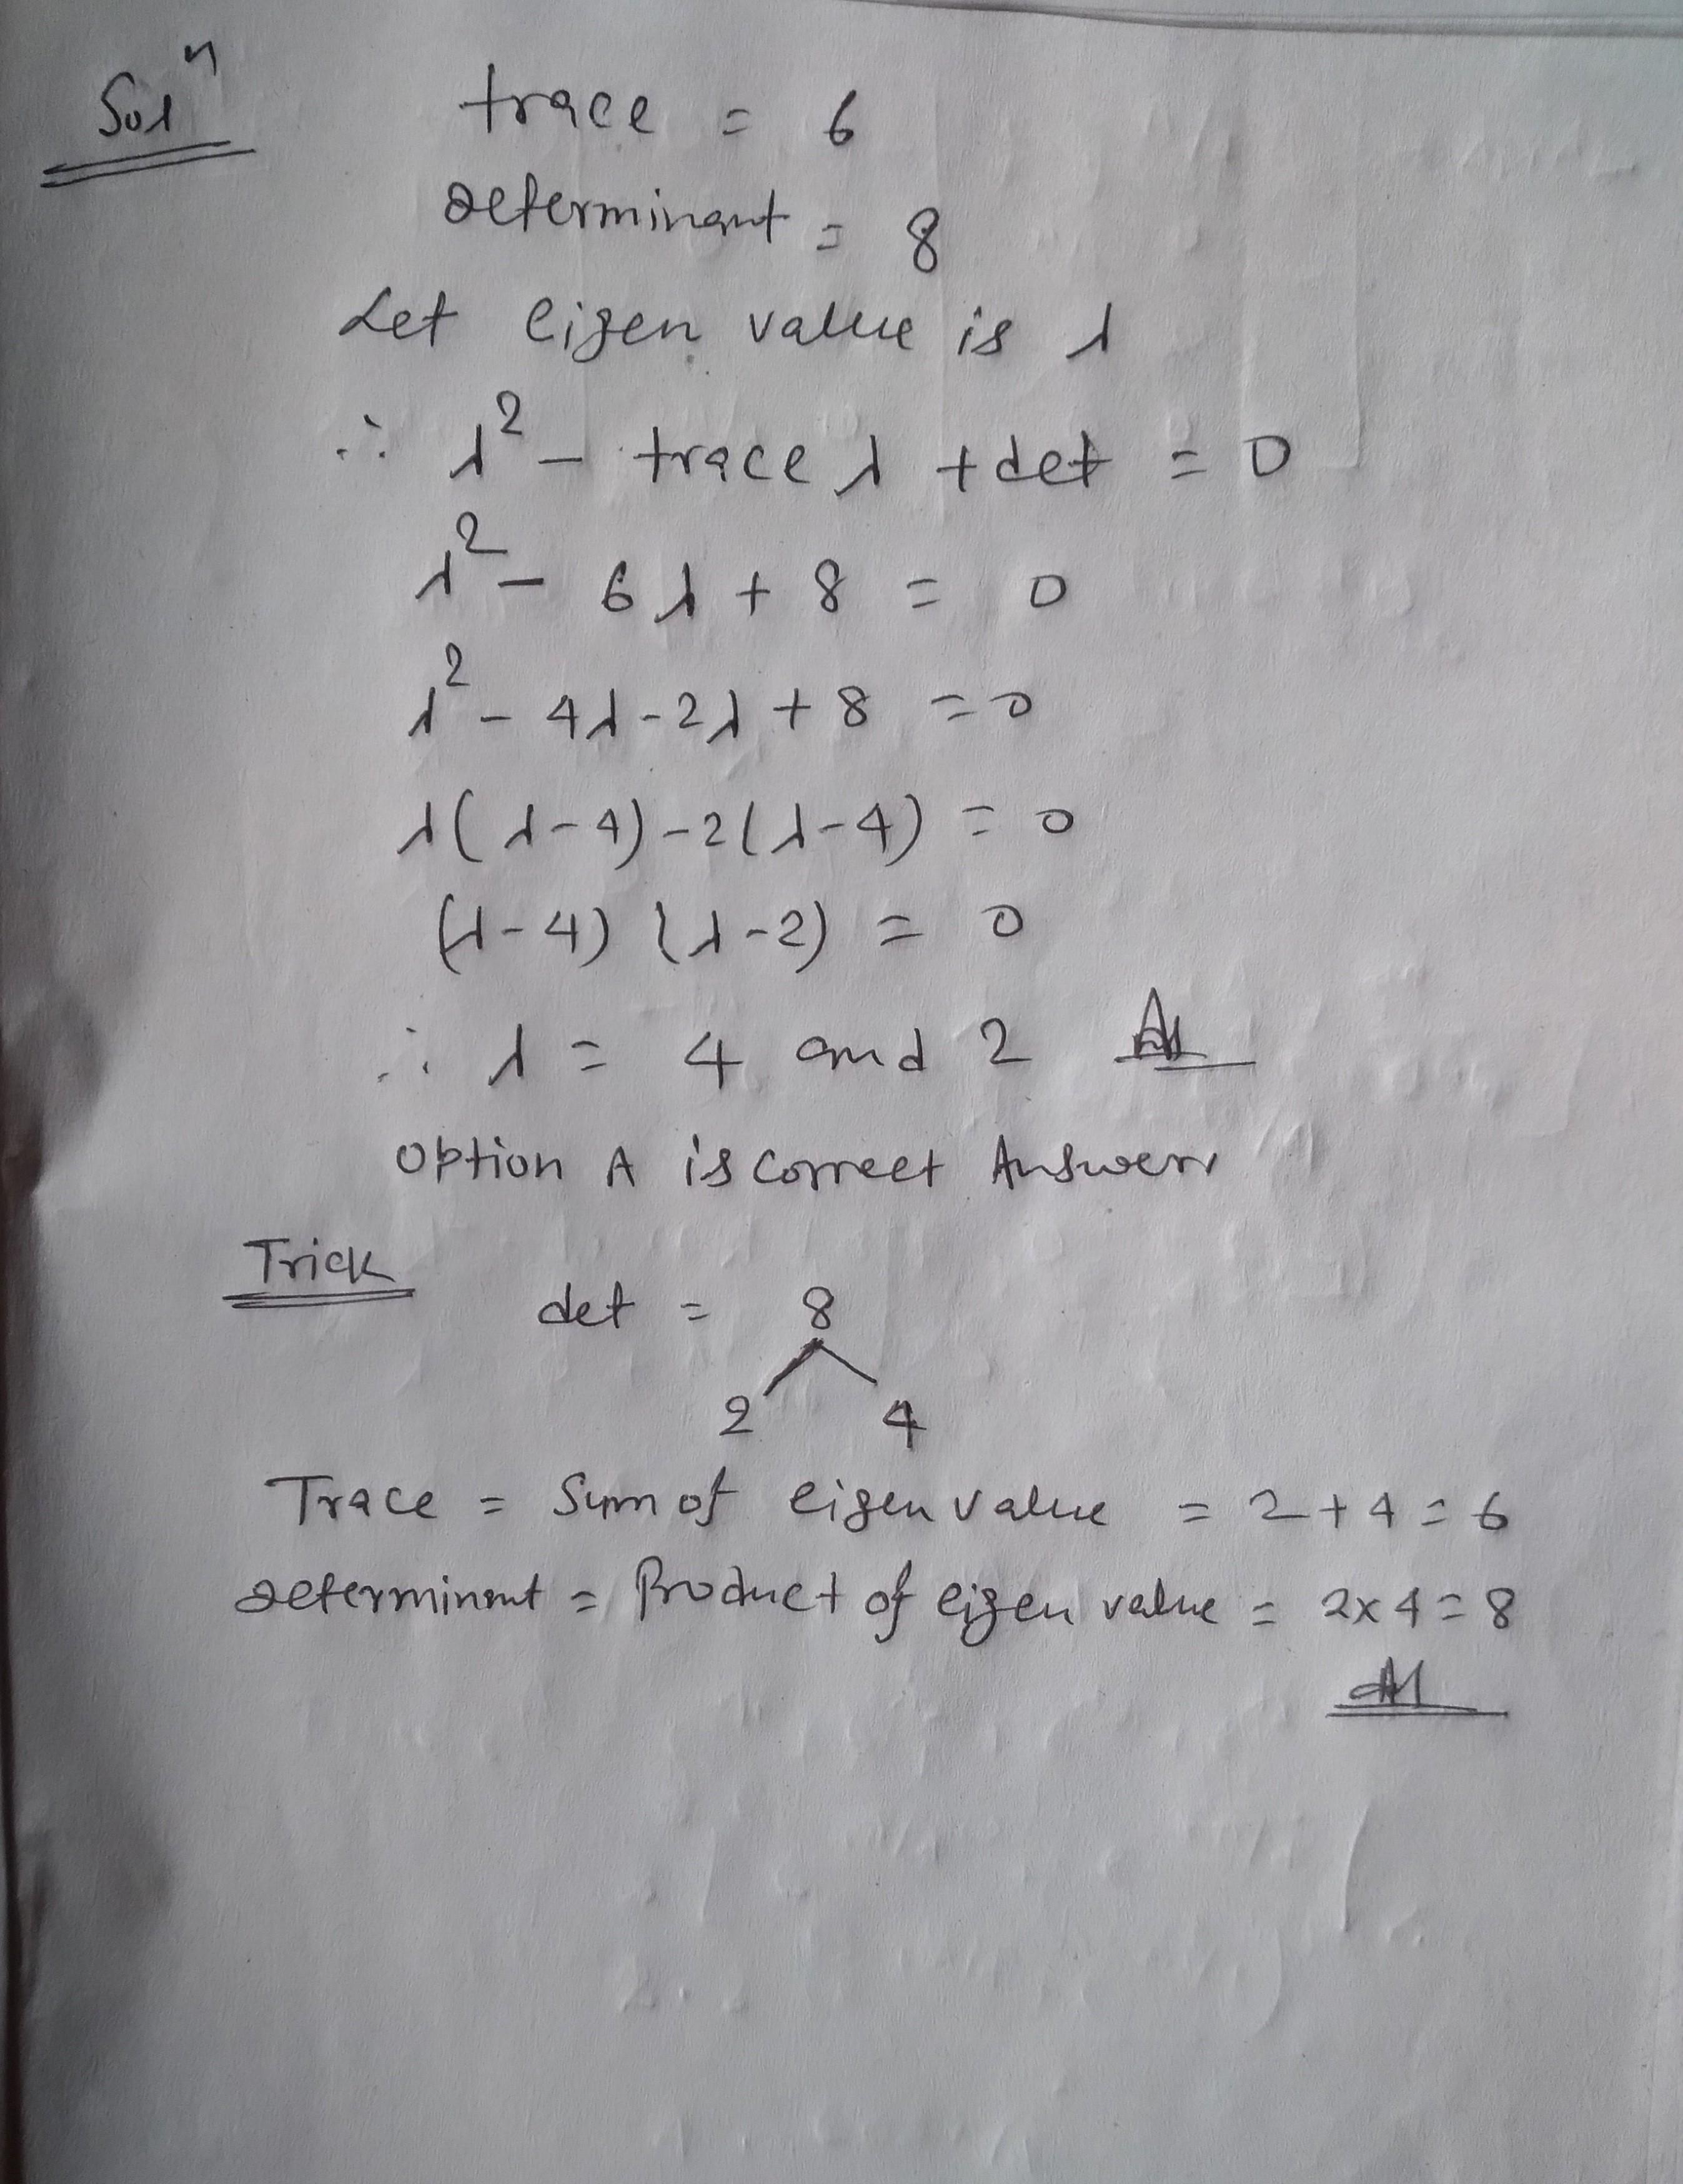 Solⁿ
trace = 6
determinant = 8
Let eigen value is λ
∴ λ² - trace λ + det = 0
λ² - 6λ + 8 = 0
λ² - 4λ - 2λ + 8 = 0
λ(λ-4) - 2(λ-4) = 0
(λ-4) (λ-2) = 0
∴ λ = 4 and 2
option A is correct Answer
Trick
det = 8
2 4
Trace = Sum of eigen value = 2 + 4 = 6
determinant = Product of eigen value = 2x4 = 8